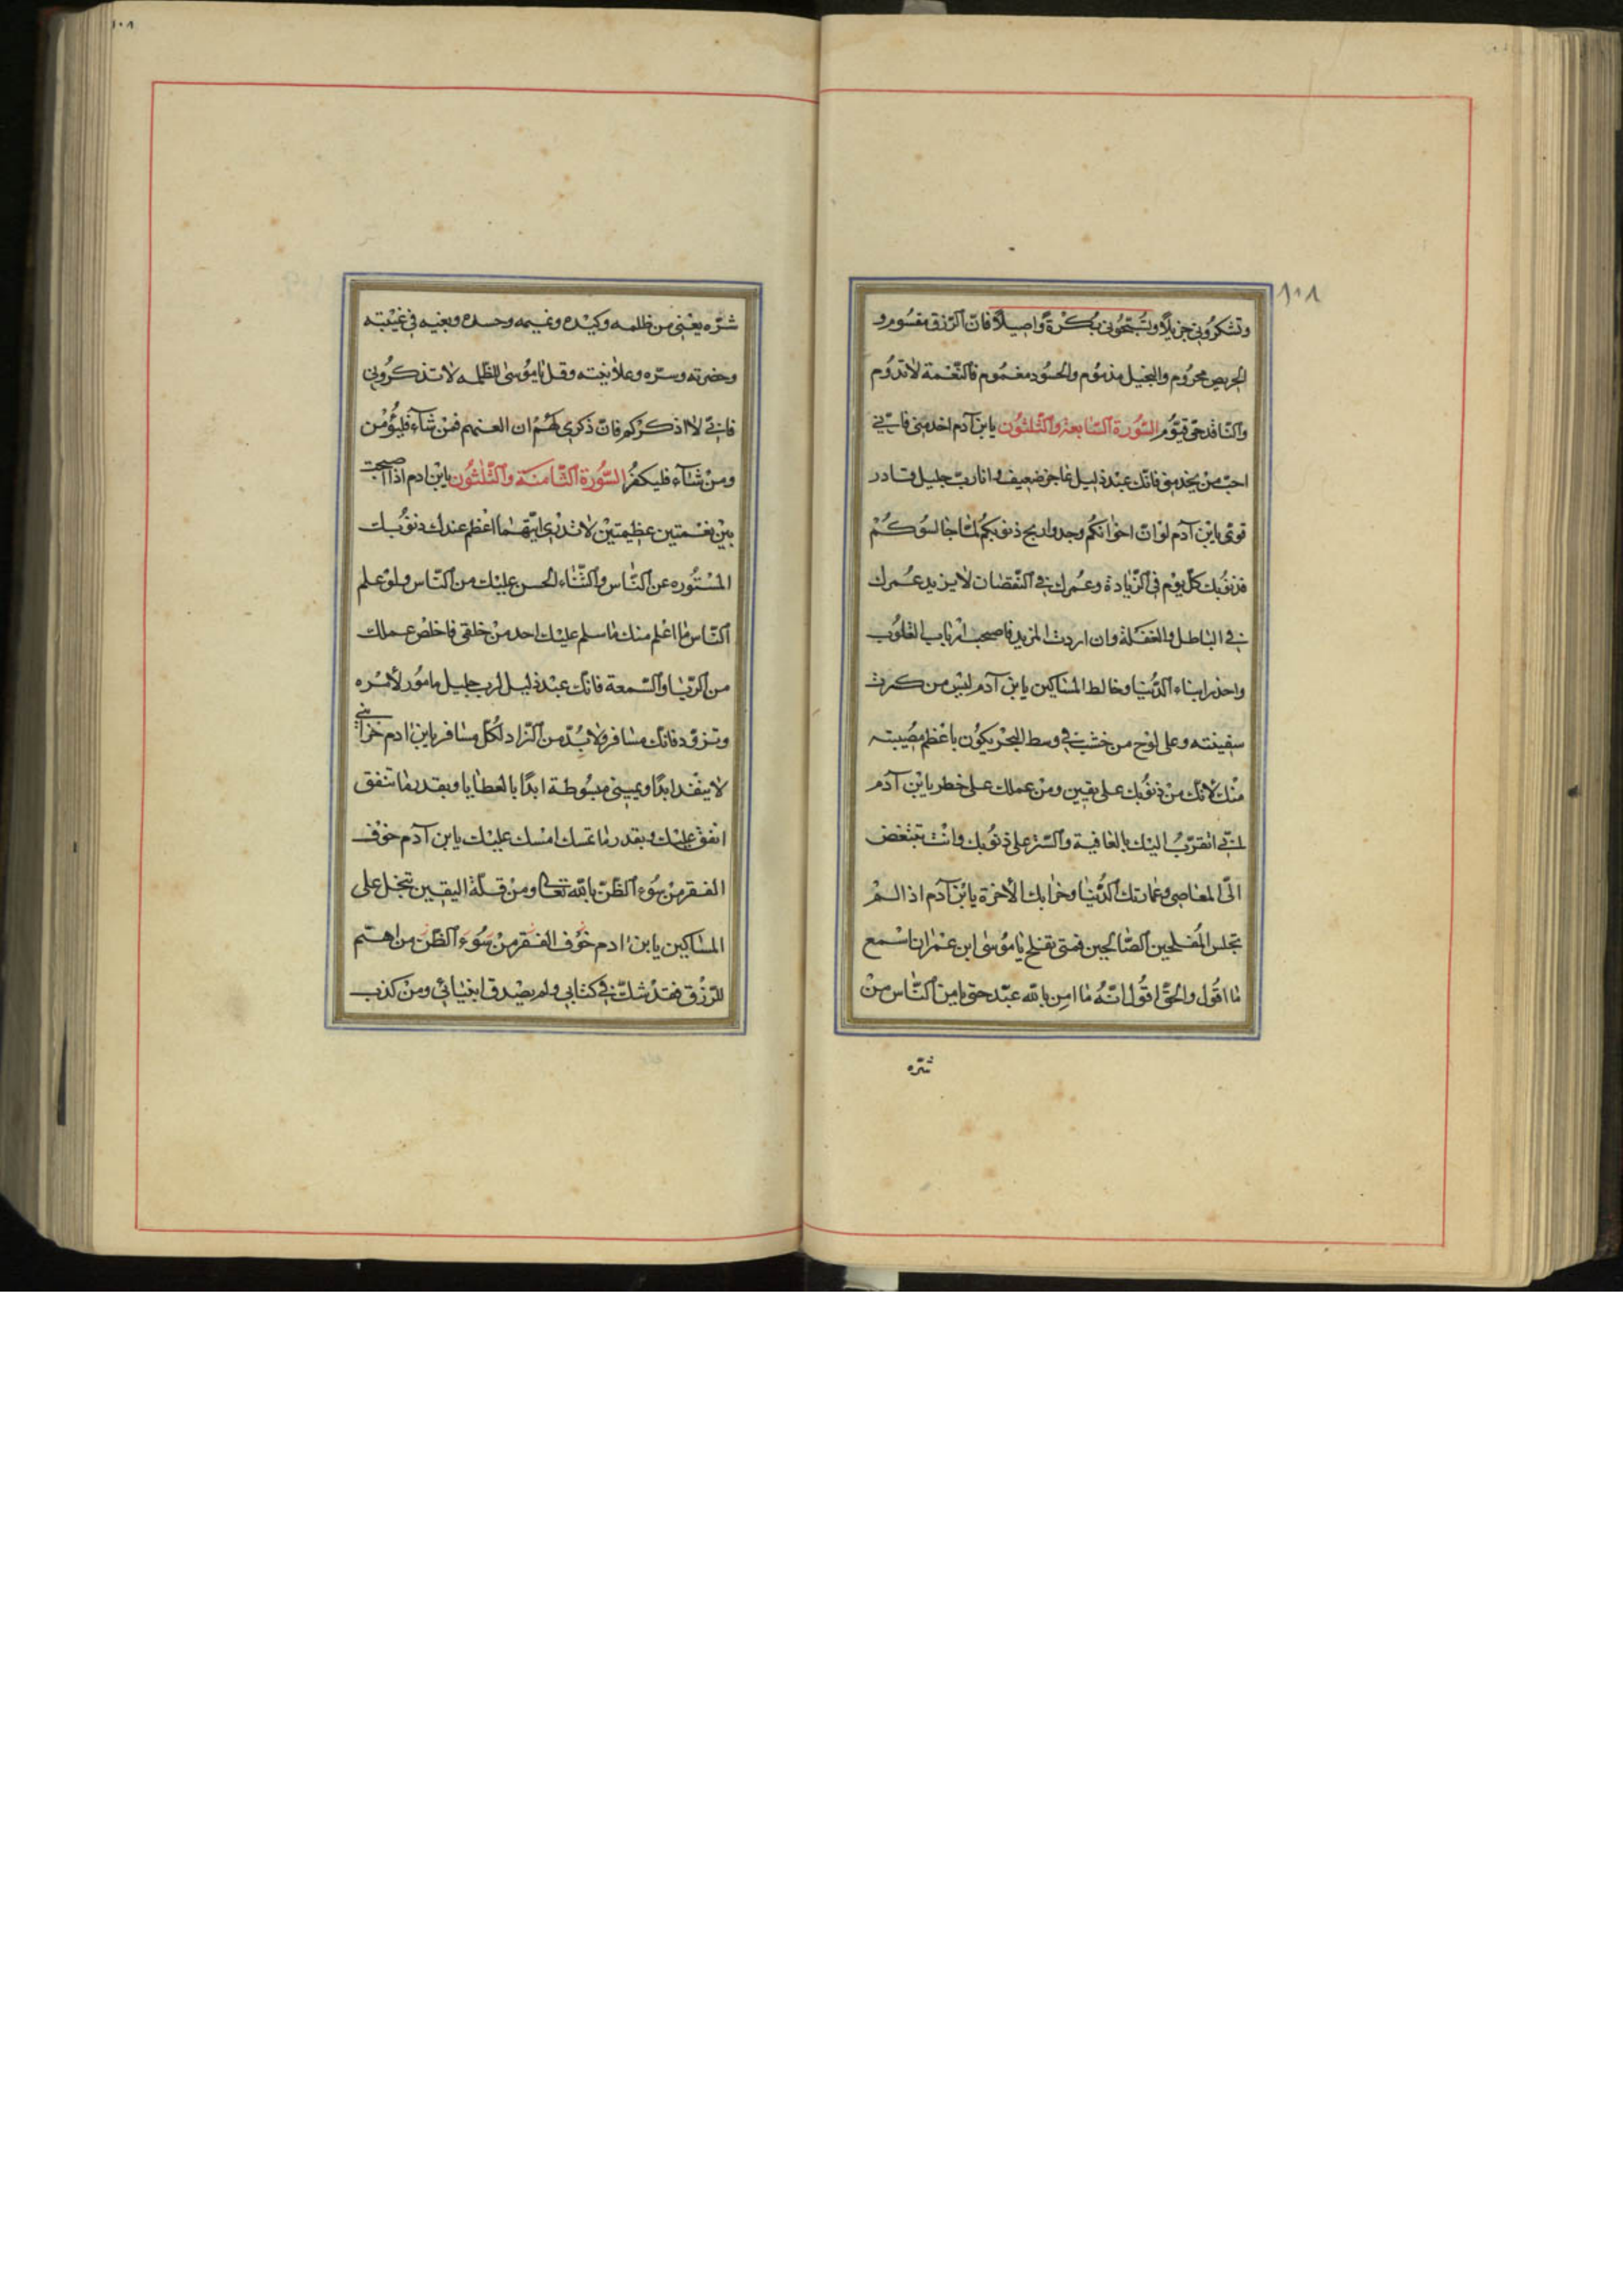 ١٠٨
وتشكروني جزيلاً وتسبّحوني بُكْرَةً واصيلاً فانّ الرّزق مقسوم و
الحريص محرُوم والبخيل مذموم والحسُود مغمُوم فالنّعمة لا تدوُم
والنّاقد حىّ قيّوم السّورة السّابعة والثّلثون يابن آدم اخدمني فانّي
احبّ من يخدمني فانّك عبْد ذليل عاجز ضعيف وانا ربّ جليل قادر
قوىّ يابن آدم لو انّ اخوانكم وجدوا ريح ذنوبكم لمّا جالسُوكُمْ
فذنوُبك كلّ يوم في الزّيادة وعمُرك في النّقصان لا يزيد عمُرك
في الباطل والغفلة وان اردت المزيد فاصحب ارباب القلُوب
واحذر ابناء الدّنيا وخالط المساكين يابن آدم ليْس من كسرت
سفينته وعلى لوْح من خشب في وسط البحْر يكوُن باعْظم مصُيبته
منْك لانّك منْ ذنوُبك على يقين ومنْ عملك على خطر يابْن آدم
انّي اتقرّبُ اليْك بالعافية والسّتر على ذنوُبك وانْت تتبغّض
الىّ المعاصي وعمارتك الدّنيا وخرابك الاخرة يابْن آدم اذا لمْ
تجلس المُفلحين الصّالحين فمتى تفلح يا موُسى ابن عمْران اسْمع
ما اقوُل والحقّ اقوُل انّهُ ما امن بالله عبْد حتى يامن النّاس منْ
شرّه
شرّه يعْني من ظلمه وكيْده ونميمه وحسده وبغيه في غيْبته
وحضرته وسرّه وعلانيته وقل يا موُسى للظّلمه لا تذكروُني
فانّي لا اذكركم فانّ ذكري لهُمْ ان العنهم فمنْ شآء فليؤْمن
ومنْ شآء فليكفرْ السّوُرة الثّامنة والثّلثون يابْن ادم اذا اصبحت
بيْن نعْمتين عظيمتيْن لا تدْري ايّتهما اعْظم عندك ذنوُبك
المسْتوُره عن النّاس والثّناء الحسن عليْك من النّاس ولوْ علم
النّاس ما اعْلم منك ما سلم عليْك احد منْ خلقي فاخلص عملك
من الرّيا والسّمعة فانّك عبْد ذليل لرب جليل مامُور لامْره
وتزوّد فانّك مسافر ولا بُدّ من الزّاد لكُلّ مسافر يابن ادم خزائني
لا ينْفد ابدًا ويميني مبسُوطة ابدًا بالعطايا وبقدر ما تنفق
انفق عليْك وبقدر ما تمسك امْسك عليْك يابن آدم خوْف
الفقر منْ سُوء الظّنّ بالله تعالى ومنْ قلّة اليقين تبخل على
المساكين يابن ادم خوْف الفقر منْ سُوء الظّنّ من اهتم
للرّزْق فقدْ شكّ في كتابي ولم يصْدق انبْيائي ومنْ كذب